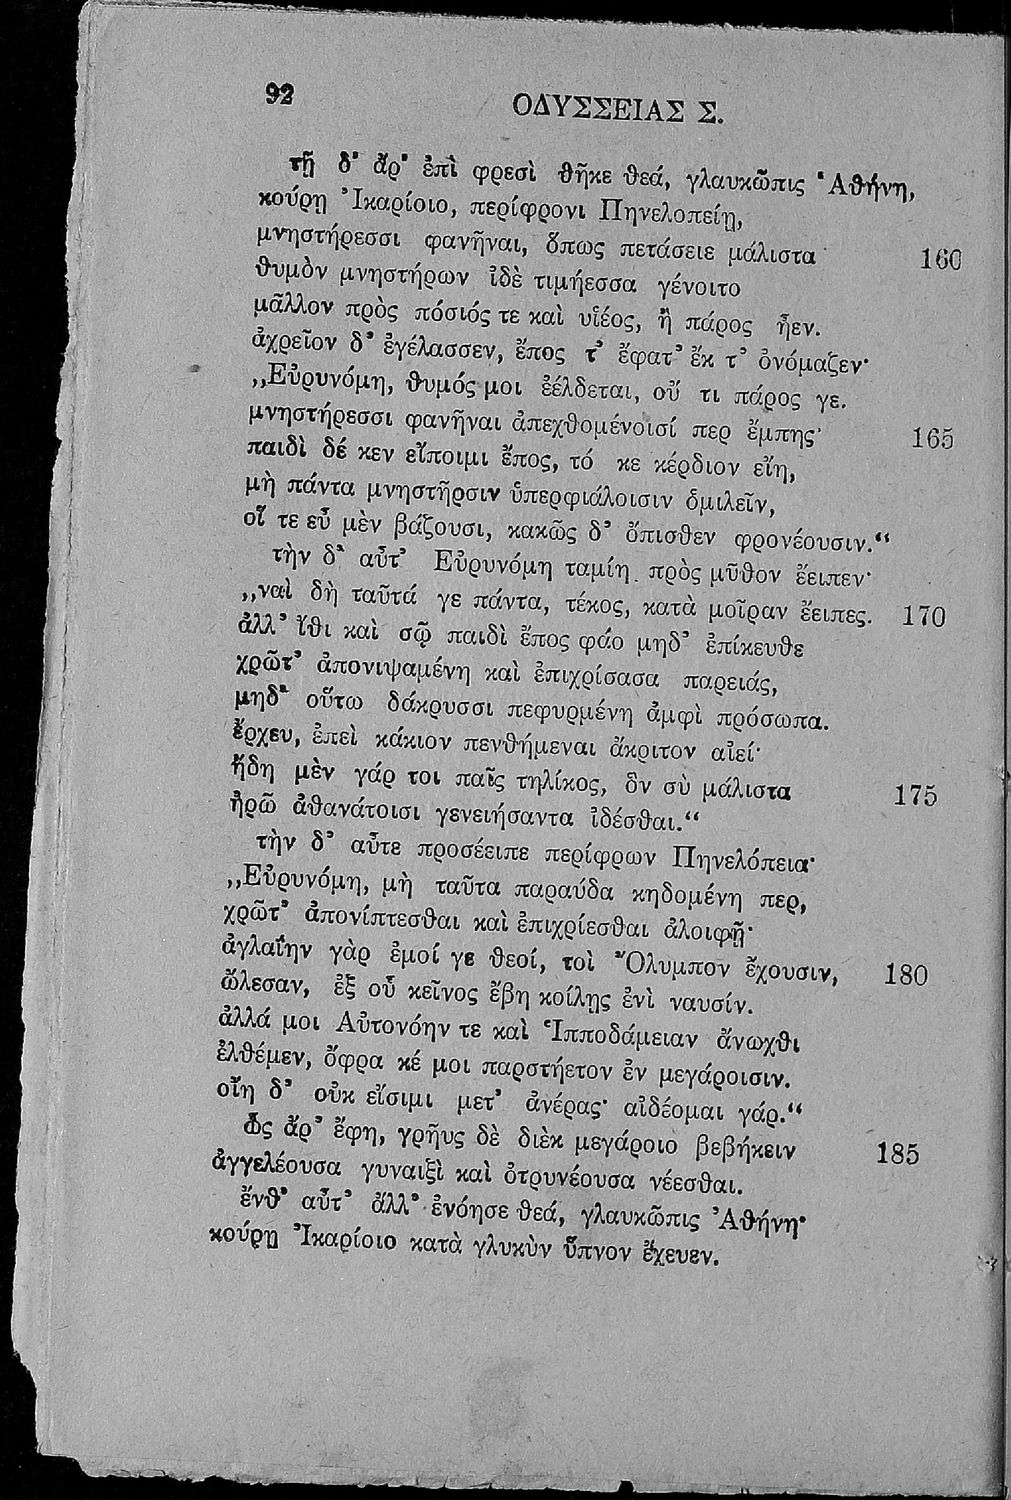 92
ΟΔΥΣΣΕΙΑΣ Σ.
τῇ δ' ἄρ' ἐπὶ φρεσὶ θῆκε θεά, γλαυκῶπις Ἀθήνη,
κούρῃ Ἰκαρίοιο, περίφρονι Πηνελοπείῃ,
μνηστήρεσσι φανῆναι, ὅπως πετάσειε μάλιστα 160
θυμὸν μνηστήρων ἰδὲ τιμήεσσα γένοιτο
μᾶλλον πρὸς πόσιός τε καὶ υἱέος, ἢ πάρος ἦεν.
ἀχρεῖον δ' ἐγέλασσεν, ἔπος τ' ἔφατ' ἔκ τ' ὀνόμαζεν·
„Εὐρυνόμη, θυμός μοι ἐέλδεται, οὔ τι πάρος γε.
μνηστήρεσσι φανῆναι ἀπεχθομένοισί περ ἔμπης· 165
παιδὶ δέ κεν εἴποιμι ἔπος, τό κε κέρδιον εἴη,
μὴ πάντα μνηστῆρσιν ὑπερφιάλοισιν ὁμιλεῖν,
οἵ τε εὖ μὲν βάζουσι, κακῶς δ' ὄπισθεν φρονέουσιν.“
τὴν δ' αὖτ' Εὐρυνόμη ταμίη πρὸς μῦθον ἔειπεν·
„ναὶ δὴ ταῦτά γε πάντα, τέκος, κατὰ μοῖραν ἔειπες. 170
ἀλλ' ἴθι καὶ σῷ παιδὶ ἔπος φάο μηδ' ἐπίκευθε
χρῶτ' ἀπονιψαμένη καὶ ἐπιχρίσασα παρειάς,
μηδ' οὕτω δάκρυσσι πεφυρμένη ἀμφὶ πρόσωπα.
ἔρχευ, ἐπεὶ κάκιον πενθήμεναι ἄκριτον αἰεί·
ἤδη μὲν γάρ τοι παῖς τηλίκος, ὃν σὺ μάλιστα 175
ἠρῶ ἀθανάτοισι γενειήσαντα ἰδέσθαι.“
τὴν δ' αὖτε προσέειπε περίφρων Πηνελόπεια·
„Εὐρυνόμη, μὴ ταῦτα παραύδα κηδομένη περ,
χρῶτ' ἀπονίπτεσθαι καὶ ἐπιχρίεσθαι ἀλοιφῇ·
ἀγλαΐην γὰρ ἐμοί γε θεοί, τοὶ Ὄλυμπον ἔχουσιν, 180
ὤλεσαν, ἐξ οὗ κεῖνος ἔβη κοίλῃς ἐνὶ ναυσίν.
ἀλλά μοι Αὐτονόην τε καὶ Ἱπποδάμειαν ἄνωχθι
ἐλθέμεν, ὄφρα κέ μοι παρστήετον ἐν μεγάροισιν.
οἴη δ' οὐκ εἴσιμι μετ' ἀνέρας· αἰδέομαι γάρ.“
ὣς ἄρ' ἔφη, γρῆυς δὲ διὲκ μεγάροιο βεβήκειν 185
ἀγγελέουσα γυναιξὶ καὶ ὀτρυνέουσα νέεσθαι.
ἔνθ' αὖτ' ἄλλ' ἐνόησε θεά, γλαυκῶπις Ἀθήνη·
κούρῃ Ἰκαρίοιο κατὰ γλυκὺν ὕπνον ἔχευεν.